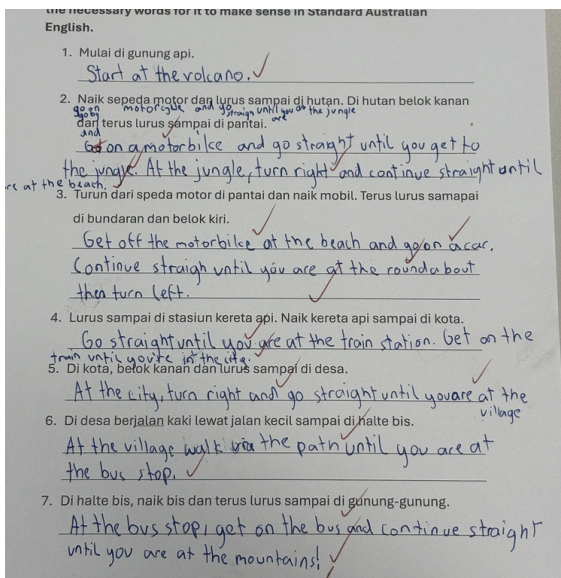 the necessary words for it to make sense in Standard Australian
English.
1. Mulai di gunung api.
Start at the volcano.
2. Naik sepeda motor dan lurus sampai di hutan. Di hutan belok kanan
go on motorbike and go straigh until you are at the jungle
dan terus lurus sampai di pantai.
and
Get on a motorbike and go straight until you get to
the jungle. At the jungle, turn right and continue straight until
re at the beach.
3. Turun dari speda motor di pantai dan naik mobil. Terus lurus samapai
di bundaran dan belok kiri.
Get off the motorbike at the beach and go on a car.
Continue straigh until you are at the roundabout
then turn left.
4. Lurus sampai di stasiun kereta api. Naik kereta api sampai di kota.
Go straight until you are at the train station. Get on the
train until you're in the city.
5. Di kota, belok kanan dan lurus sampai di desa.
At the city, turn right and go straight until you are at the
village
6. Di desa berjalan kaki lewat jalan kecil sampai di halte bis.
At the village walk via the path until you are at
the bus stop.
7. Di halte bis, naik bis dan terus lurus sampai di gunung-gunung.
At the bus stop, get on the bus and continue straight
until you are at the mountains!